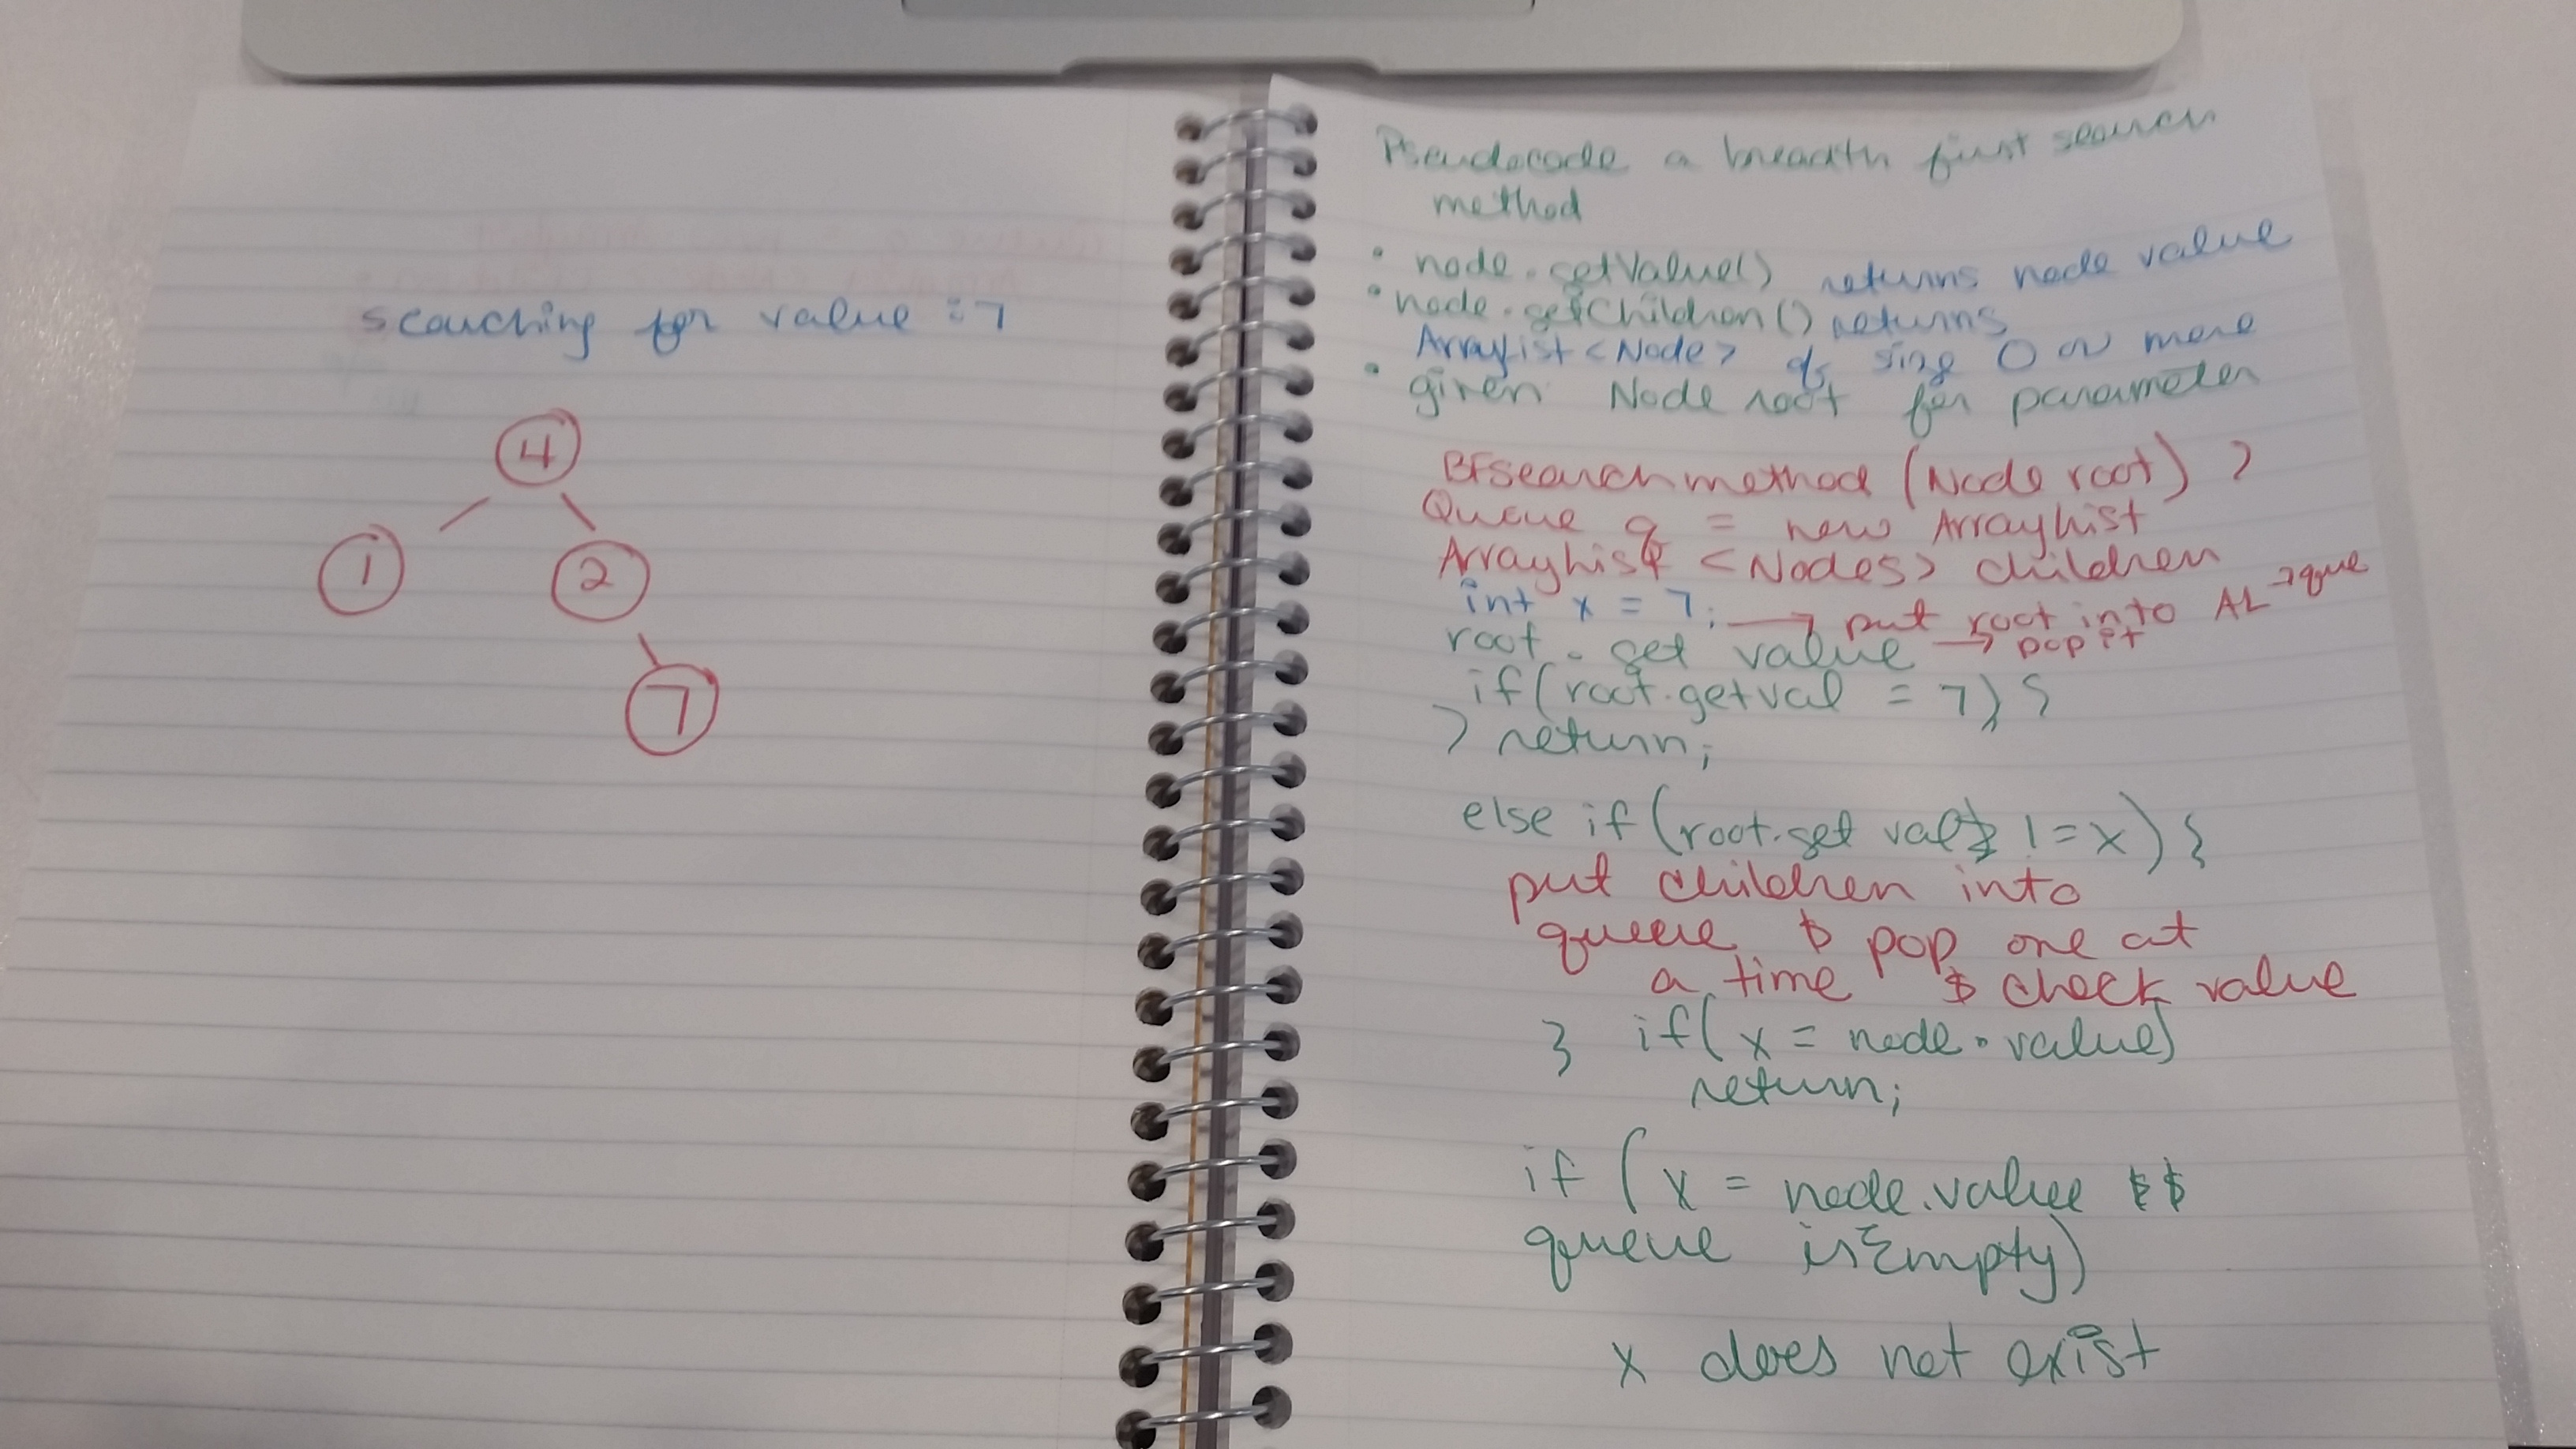 searching for value : 7
4
1
2
7
Pseudocode a breadth first search
method
• node.getValue() returns node value
• node.getChildren() returns
ArrayList <Node> of size 0 or more
• given Node root for parameter
BFsearchmethod (Node root) {
Queue q = new ArrayList
ArrayList <Nodes> children
int x = 7; → put root into AL → que
root.get value → pop it
if(root.getval = 7) {
} return;
else if (root.get val != x) {
put children into
queue & pop one at
a time & check value
} if(x = node.value)
return;
if (x = node.value &&
queue isEmpty)
x does not exist